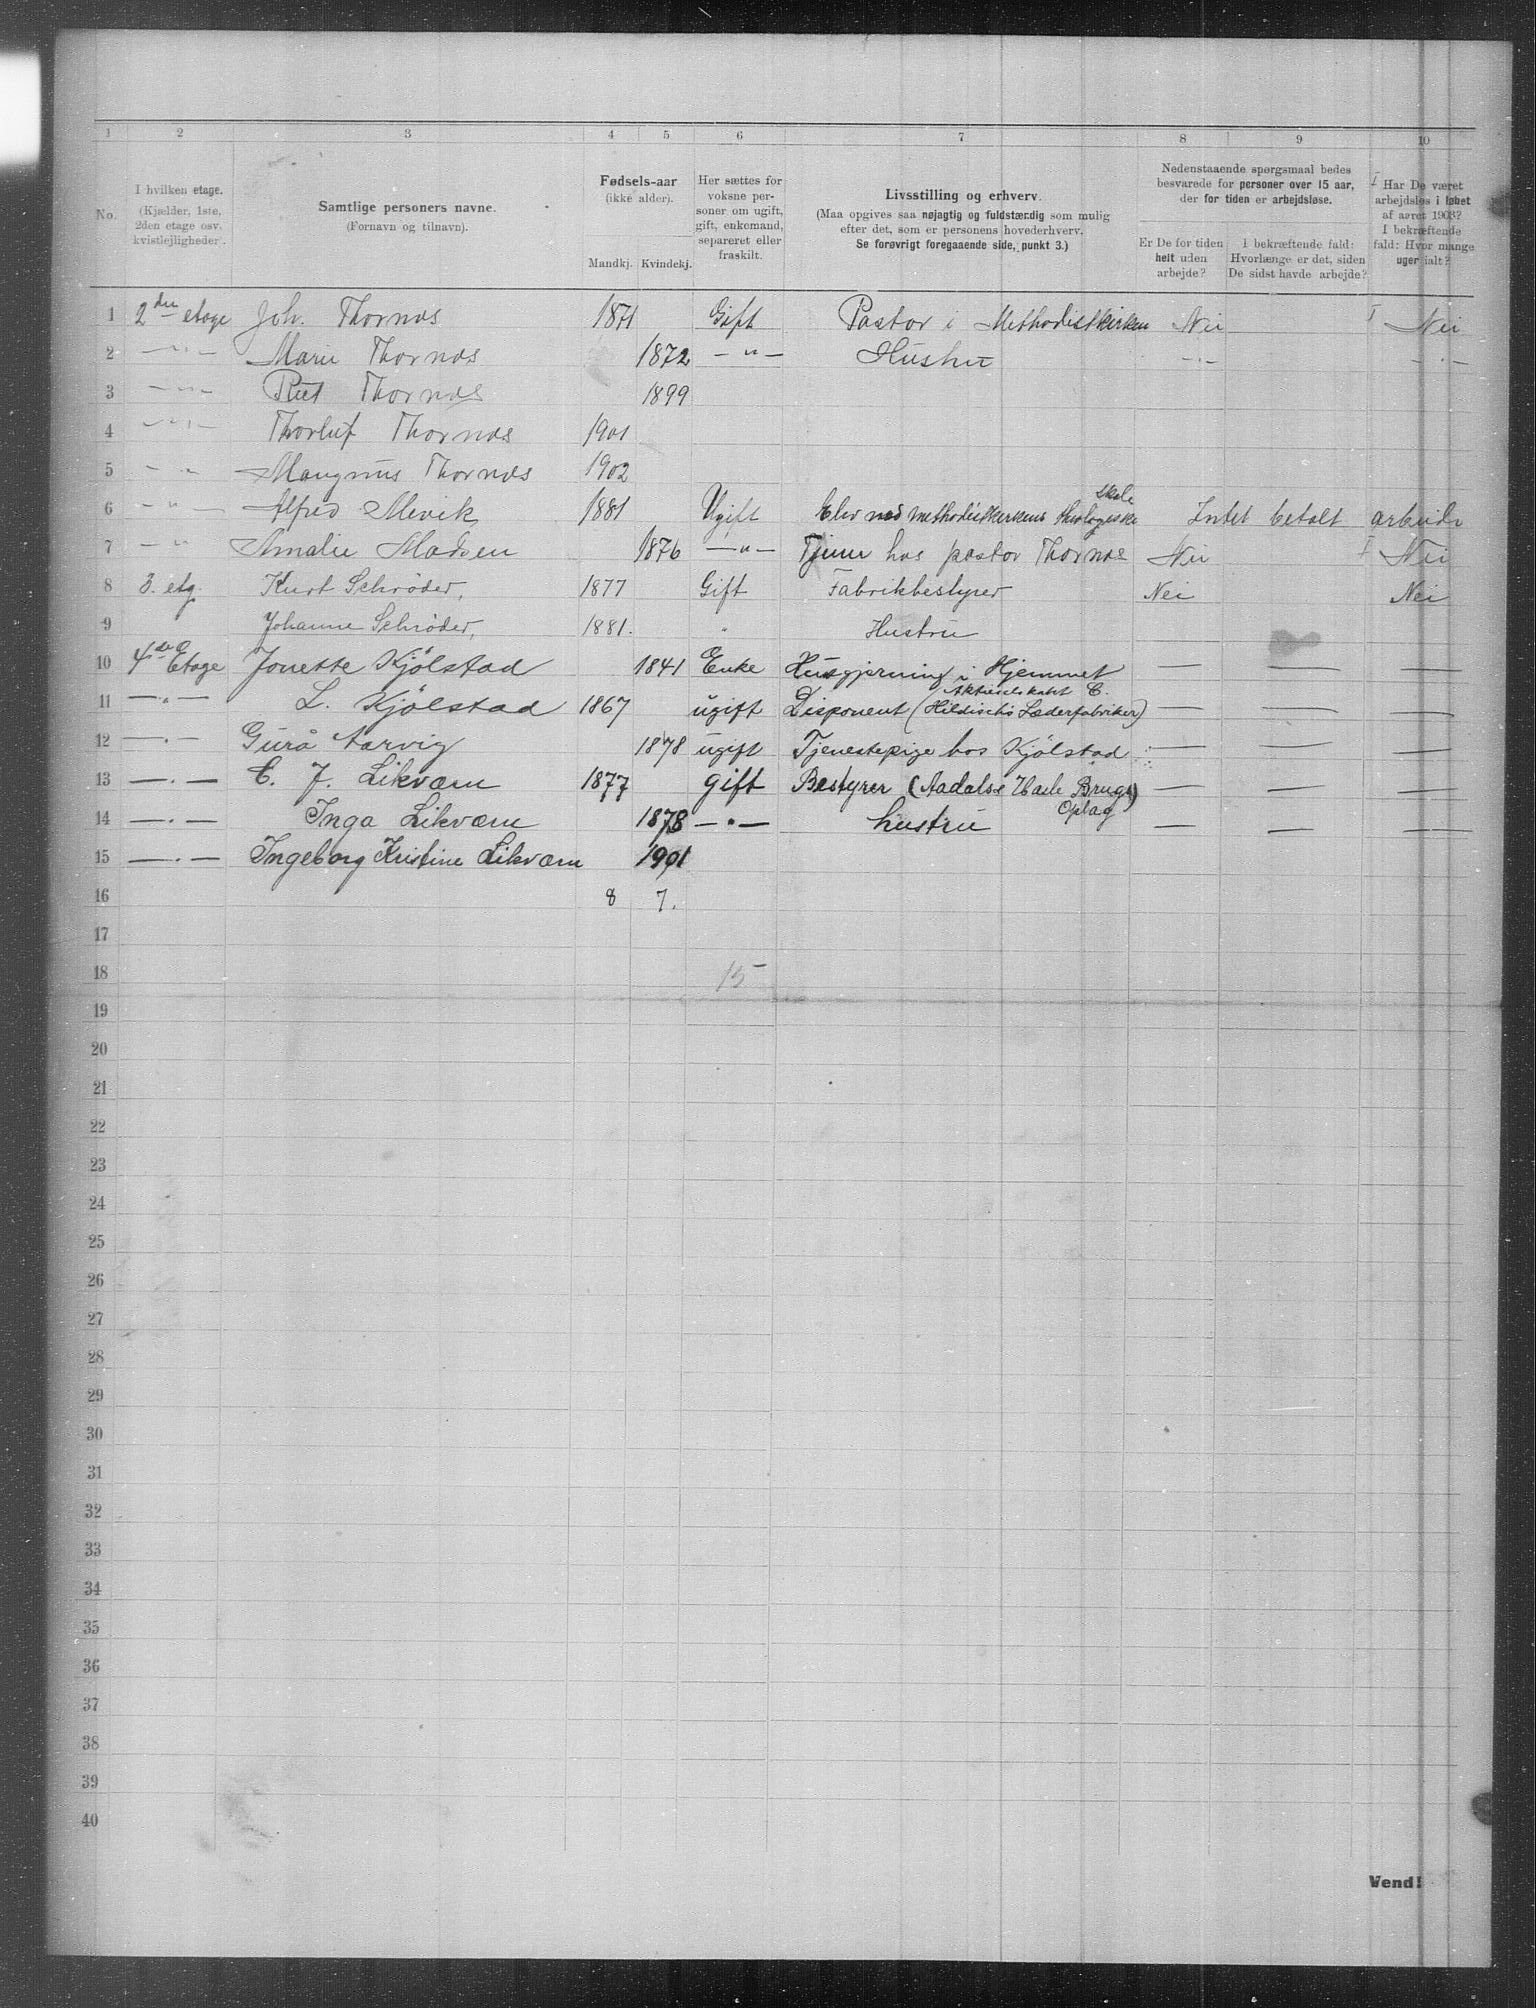 1 2 3 4 5 6 7 8 9 10
No.
I hvilken etage.
(Kjælder, 1ste,
2den etage osv.
kvistlejligheder).
Samtlige personers navne.
(Fornavn og tilnavn).
Fødsels-aar
(ikke alder).
Mandkj. Kvindekj.
Her sættes for
voksne per-
soner om ugift,
gift, enkemand,
separeret eller
fraskilt.
Livsstilling og erhverv.
(Maa opgives saa nøjagtig og fuldstændig som mulig
efter det, som er personens hovederhverv.
Se forøvrigt foregaaende side, punkt 3.)
Nedenstaaende spørgsmaal bedes
besvarede for personer over 15 aar,
der for tiden er arbejdsløse.
Er De for tiden
helt uden
arbejde?
I bekræftende fald:
Hvorlænge er det, siden
De sidst havde arbejde?
Har De været
arbejdsløs i løbet
af aaret 1903?
I bekræftende
fald: Hvor mange
uger ialt?
1 2den etage Joh. Thornæs 1871 Gift Pastor i Methodistkirken Nei Nei
2 — " — Marie Thornæs 1872 — " — Hustru — " — — " —
3 — " — Rut Thornæs 1899
4 — " — Thorluf Thornæs 1901
5 — " Mangnus Thornæs 1902
6 — " — Alfred Mevik 1881 Ugift Elev ved Methodistkirkens theologiske skole Intet betalt arbeide
7 — " Amalie Madsen 1876 — " — Tjener hos pastor Thornæs Nei Nei
8 3. etg. Kurt Schrøder, 1877 Gift Fabrikbestyrer Nei Nei
9 Johanne Schrøder, 1881. " Hustru
10 4de Etage Jonette Kjölstad 1841 Enke Husgjerning i Hjemmet — — —
11 — " — L. Kjölstad 1867 ugift Disponent (Aktieselskabt C. Hildisch's Læderfabriker) — — —
12 — " — Guro Aarvig 1878 ugift Tjenestepige hos Kjölstad — — —
13 — " — C. J. Likværn 1877 gift Bestyrer (Aadals Brugs Oplag) — — —
14 — " — Inga Likværn 1878 — " — hustru — — —
15 — " — Ingeborg Kristine Likværn 1901
16 8 7.
17
18 15
19
20
21
22
23
24
25
26
27
28
29
30
31
32
33
34
35
36
37
38
39
40
Vend!